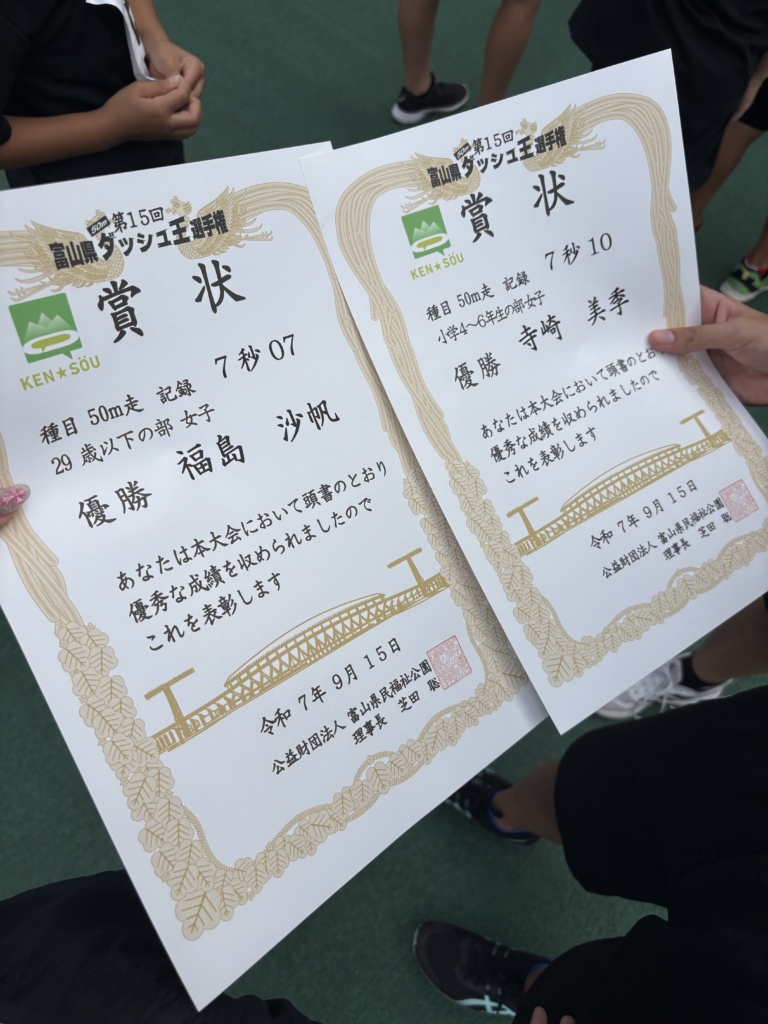 50m 第15回
富山県 ダッシュ王 選手権
賞状
KEN★SŌU
種目 50m走 記録 7秒07
29歳以下の部 女子
優勝 福島 沙帆
あなたは本大会において頭書のとおり
優秀な成績を収められましたので
これを表彰します
令和7年9月15日
公益財団法人 富山県民福祉公園
理事長 芝田 聡
50m 第15回
富山県 ダッシュ王 選手権
賞状
KEN★SŌU
種目 50m走 記録 7秒10
小学4〜6年生の部・女子
優勝 寺崎 美季
あなたは本大会において頭書のとお
優秀な成績を収められましたので
これを表彰します
令和7年9月15日
公益財団法人 富山県民福祉公園
理事長 芝田 聡